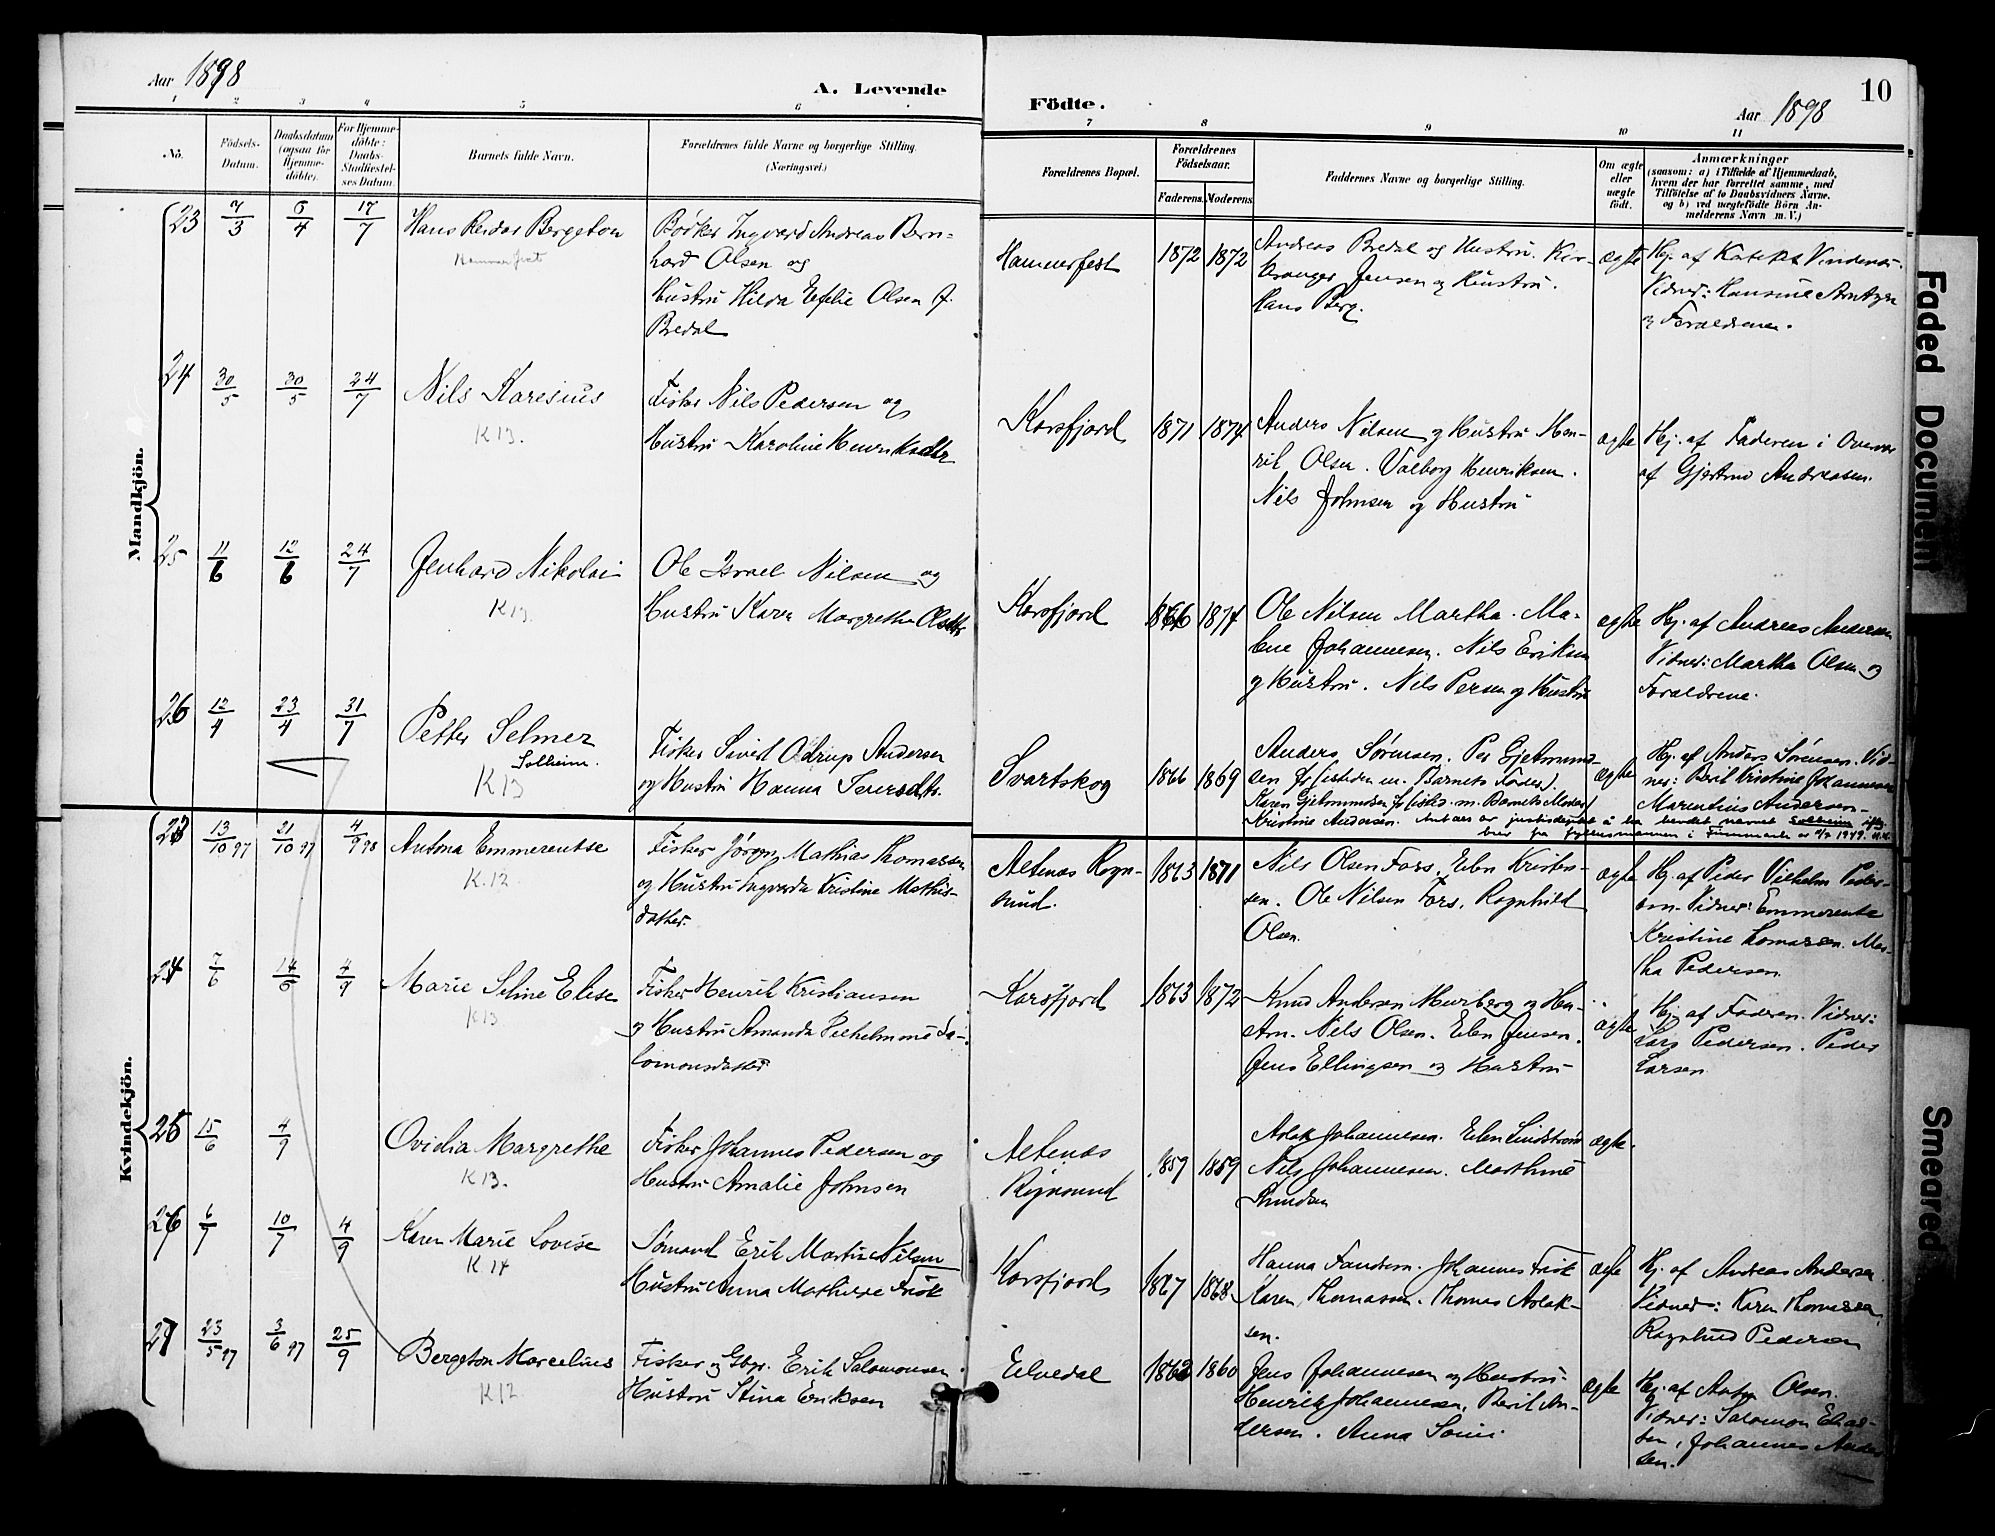 Aar 1898
A. Levende
Födte.
Aar 1898
10
1 2 3 4 5 6 7 8 9 10 11
No.
Födsels-
Datum.
Daabsdatum
(ogsaa for
Hjemme-
döbte).
For Hjemme-
döbte:
Daabs-
Stadfæstel-
ses Datum.
Barnets fulde Navn.
Forældrenes fulde Navne og borgerlige Stilling.
(Næringsvei.)
Forældrenes Bopæl.
Forældrenes
Födselsaar.
Faderens.
Moderens.
Faddernes Navne og borgerlige Stilling.
Om ægte
eller
uægte
födt.
Anmærkninger
(saasom: a) i Tilfælde af Hjemmedaab,
hvem der har forrettet samme, med
Tilföielse af to Daabsvidners Navne,
og b) ved uægtefödte Börn An-
melderens Navn m. V.)
Mandkjön.
23 7/3 6/4 17/7 Hans Reidar Bergeton
Hammerfest
Ingvard Andreas Bern-
hard Olsen og
Hustru Hilda Olsen f.
Bredal
Hammerfest 1872 1872
Andreas Bredal og Hustru.
Jensen og Hustru.
Hans Berg.
ægte
Hj. af
Vidner: Hansine Arntzen
og Forældrene.
24 30/5 30/5 24/7 Nils Karesius
K 13.
Fisker Nils Pedersen og
Hustru Karoline Henriksdtr
Korsfjord 1871 1874
Anders Nilsen og Hustru Hen-
rik Olsen. Valborg Henriksen.
Nils Johnsen og Hustru
ægte
Hj. af Faderen i Overvær
af Gjertrud Andreasen.
25 11/6 12/6 24/7 Jenhard Nikolai
K 13.
Ole Israel Nilsen og
Hustru Karen Margrethe Olsdtr
Korsfjord 1866 1874
Ole Nilsen Martha. Ma-
lene Johannesen. Nils Eriksen
og Hustru. Nils Persen og Hustru
ægte
Hj. af Andreas Andersen
Vidner: Martha Olsen og
Forældrene.
26 12/4 23/4 31/7 Petter Selmer
Solheim.
K 13
Fisker Sivert Andersen
og Hustru Hanna
Svartskog 1866 1869
Anders Sørensen. Per Gjetmund-
sen m. Barnets Fader).
Karen Gjetmundsen m. Barnets Moder)
Kristine Andersen.
ægte
Hj. af Anders Sørensen. Vid-
ner: Berit Kristine Johannesen
Marentius Andersen.
av justisdep. å ta navnet Solheim iflg.
brev fra fylkesmannen i Finnmark av 1949.
Kvindekjön.
23 13/10 97 21/10 97 4/9 98 Antona Emmerentse
K.12.
Fisker Jørgen Mathias Thomassen
og Hustru Ingvarda Kristine Mathis-
datter.
Altenæs Rogn-
sund.
1863 1871
Nils Olsen Fors. Elen Kristen-
sen. Ole Nilsen Fors. Ragnhild
Olsen.
ægte
Hj. af Peder Vilhelm Peder-
sen. Vidner: Emmerentse
Kristine Tomassen. Mar-
tha Pedersen.
24 7/6 14/6 4/9 Marie Seline Elise
K 13
Fisker Henrik Kristiansen
og Hustru Amanda Vilhelmine Sa-
lomonsdatter
Korsfjord 1863 1872
Knud Andersen Murberg og Hu-
stru. Nils Olsen. Elen Jensen.
Jens Ellingsen og Hustru
ægte
Hj. af Faderen. Vidner:
Lars Pedersen. Peder
Larsen
25 15/6 4/9 Ovidia Margrethe
K 13.
Fisker Johannes Pedersen og
Hustru Amalie Johnsen
Altenæs
Rognsund
1859 1859
Aslak Johannesen. Elen Lindstrøm
Nils Johannesen. Marthine
Knudsen
ægte.
26 6/7 10/7 4/9 Karen Marie Lovise
K. 14
Sømand Erik Martin Nilsen
Hustru Anna Mathilde Frisk
Korsfjord 1867 1868
Hanna Johannes Frisk
Karen Thomassen. Thomas Aslak-
sen.
ægte
Hj. af Andreas Andersen.
Vidner: Karen Thomassen,
Ragnhild Pedersen
27 23/5 97 3/6 97 25/9 Bergeton Marcelius
K 12
Fisker og Gbr. Erik Salomonsen.
Hustru Stina Eriksen
Elvedal 1862 1860
Jens Johannesen og Hustru.
Henrik Johannesen, Berit An-
dersen. Anna
ægte
Hj. af Anton Olsen.
Vidner: Salomon Elias-
sen, Johannes Ander
sen.
Faded Document
Smeared